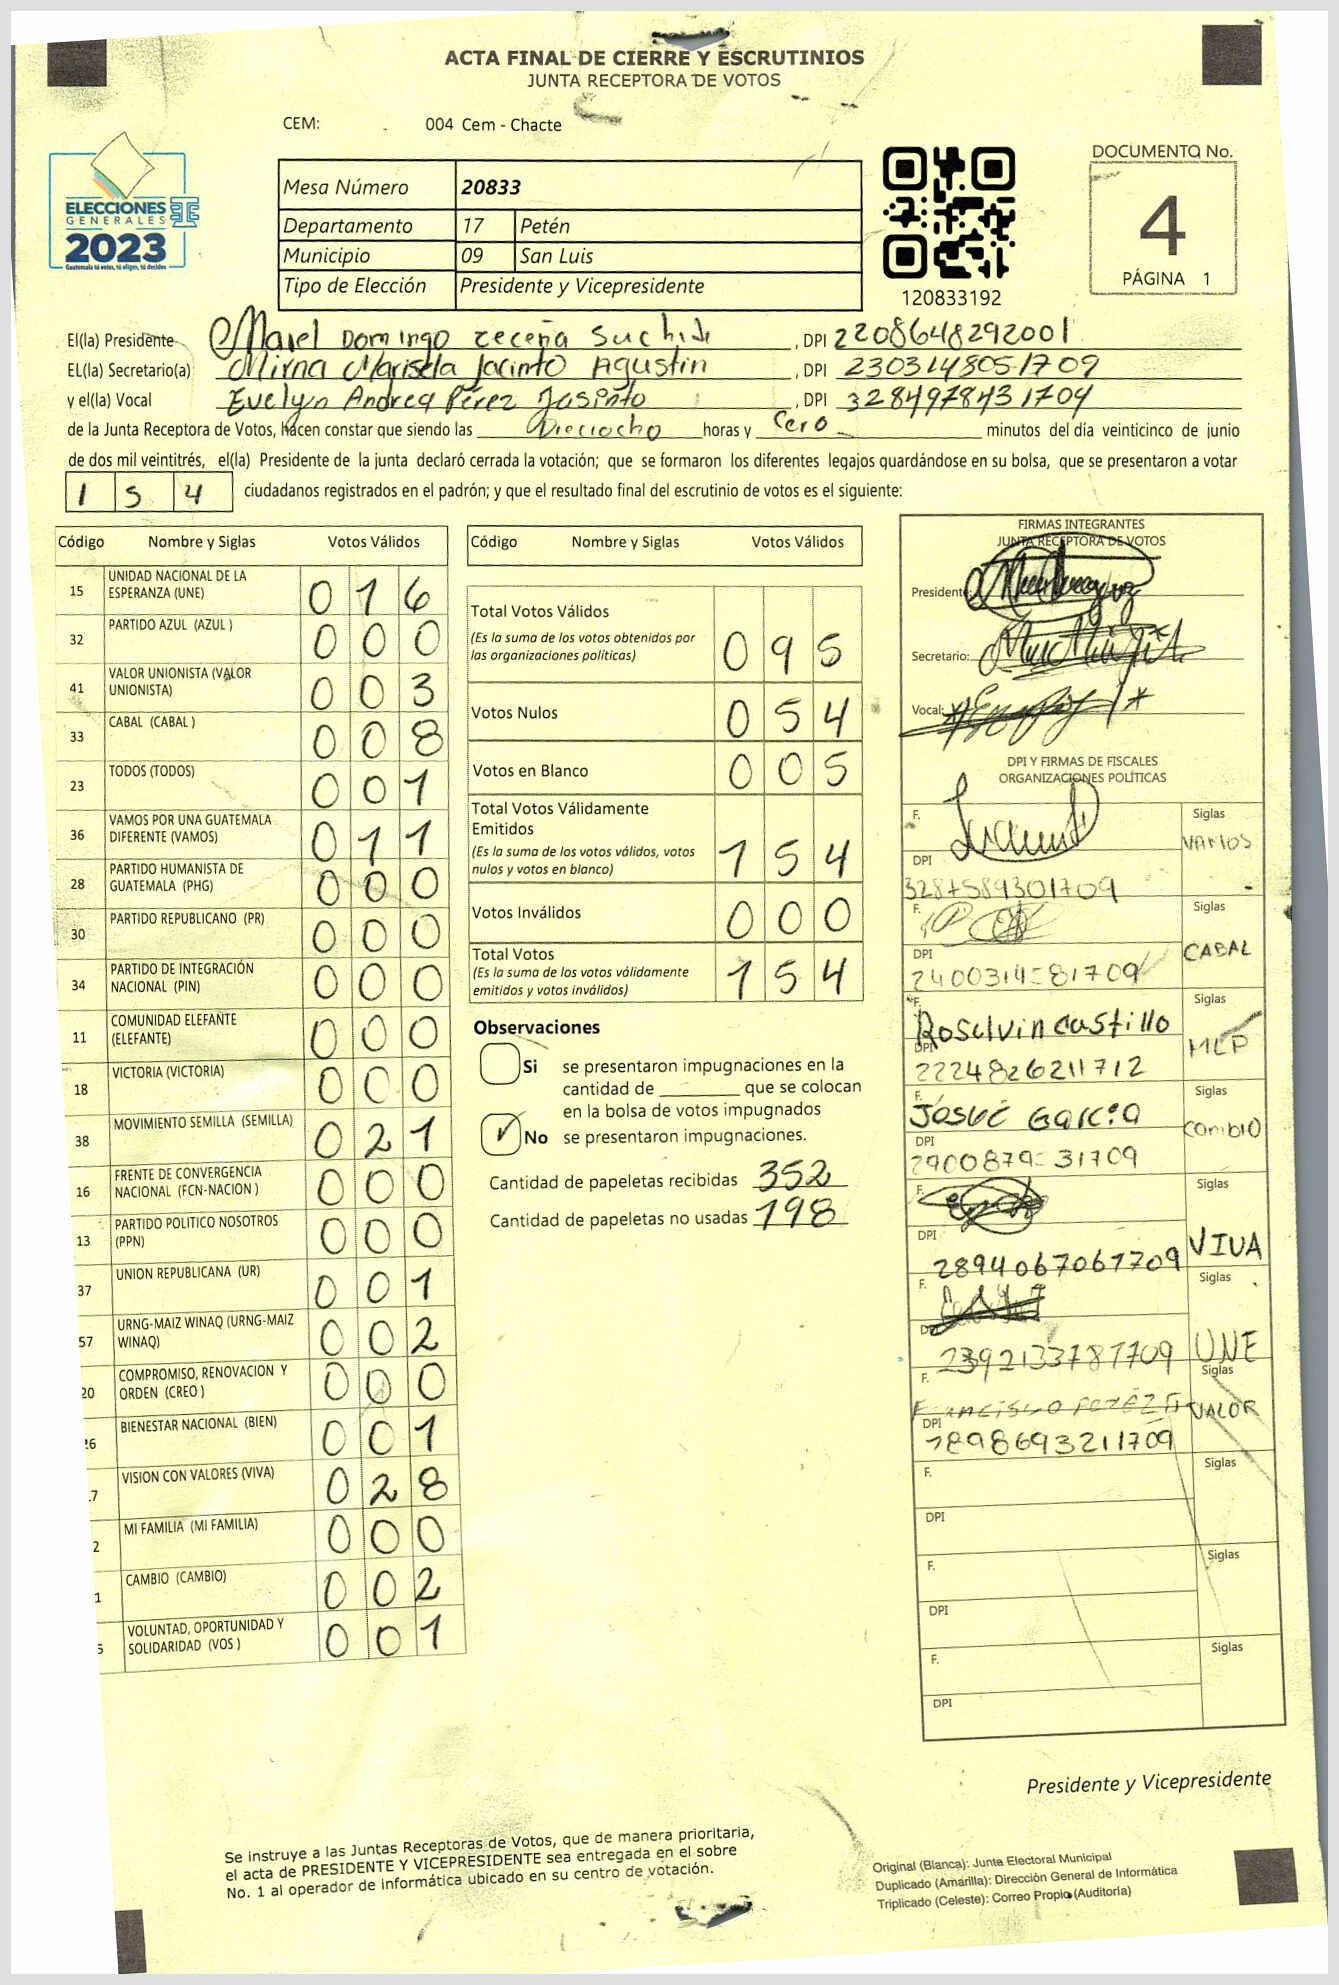 ACTA FINAL DE CIERRE Y ESCRUTINIOS
JUNTA RECEPTORA DE VOTOS
CEM: 004 Cem - Chacte
ELECCIONES
GENERALES
2023
Guatemala tú votas, tú eliges, tú decides
Mesa Número 20833
Departamento 17 Petén
Municipio 09 San Luis
Tipo de Elección Presidente y Vicepresidente
120833192
DOCUMENTO No.
4
PÁGINA 1
El(la) Presidente Domingo , DPI 2208648292001
EL(la) Secretario(a) Mirna Marisela Jacinto Agustin , DPI 2303148051709
y el(la) Vocal Evelyn Andrea Pérez Jasinto , DPI 3284978431709
de la Junta Receptora de Votos, hacen constar que siendo las Dieciocho horas y Cero minutos del día veinticinco de junio
de dos mil veintitrés, el(la) Presidente de la junta declaró cerrada la votación; que se formaron los diferentes legajos guardándose en su bolsa, que se presentaron a votar
1 5 4 ciudadanos registrados en el padrón; y que el resultado final del escrutinio de votos es el siguiente:
Código Nombre y Siglas Votos Válidos
15 UNIDAD NACIONAL DE LA ESPERANZA (UNE) 0 1 6
32 PARTIDO AZUL (AZUL ) 0 0 0
41 VALOR UNIONISTA (VALOR UNIONISTA) 0 0 3
33 CABAL (CABAL ) 0 0 8
23 TODOS (TODOS) 0 0 1
36 VAMOS POR UNA GUATEMALA DIFERENTE (VAMOS) 0 1 1
28 PARTIDO HUMANISTA DE GUATEMALA (PHG) 0 0 0
30 PARTIDO REPUBLICANO (PR) 0 0 0
34 PARTIDO DE INTEGRACIÓN NACIONAL (PIN) 0 0 0
11 COMUNIDAD ELEFANTE (ELEFANTE) 0 0 0
18 VICTORIA (VICTORIA) 0 0 0
38 MOVIMIENTO SEMILLA (SEMILLA) 0 2 1
16 FRENTE DE CONVERGENCIA NACIONAL (FCN-NACION ) 0 0 0
13 PARTIDO POLITICO NOSOTROS (PPN) 0 0 0
37 UNION REPUBLICANA (UR) 0 0 1
57 URNG-MAIZ WINAQ (URNG-MAIZ WINAQ) 0 0 2
20 COMPROMISO, RENOVACION Y ORDEN (CREO ) 0 0 0
26 BIENESTAR NACIONAL (BIEN) 0 0 1
7 VISION CON VALORES (VIVA) 0 2 8
2 MI FAMILIA (MI FAMILIA) 0 0 0
1 CAMBIO (CAMBIO) 0 0 2
5 VOLUNTAD, OPORTUNIDAD Y SOLIDARIDAD (VOS ) 0 0 1
Código Nombre y Siglas Votos Válidos
Total Votos Válidos 0 9 5
(Es la suma de los votos obtenidos por
las organizaciones políticas)
Votos Nulos 0 5 4
Votos en Blanco 0 0 5
Total Votos Válidamente
Emitidos
(Es la suma de los votos válidos, votos
nulos y votos en blanco) 1 5 4
Votos Inválidos 0 0 0
Total Votos 1 5 4
(Es la suma de los votos válidamente
emitidos y votos inválidos)
Observaciones
Si se presentaron impugnaciones en la
cantidad de ______ que se colocan
en la bolsa de votos impugnados
No se presentaron impugnaciones.
Cantidad de papeletas recibidas 352
Cantidad de papeletas no usadas 198
FIRMAS INTEGRANTES
JUNTA RECEPTORA DE VOTOS
Presidente:
Secretario:
Vocal:
DPI Y FIRMAS DE FISCALES
ORGANIZACIONES POLÍTICAS
F. Siglas VAMOS
DPI 3287589301709
F. Siglas CABAL
DPI
F. Roselvin Castillo Siglas MLP
DPI 2224826211712
F. Josué Garcia Siglas Cambio
DPI
F. Siglas VIVA
DPI 2894067061709
F. Siglas UNE
DPI 2392133781709
F. Siglas VALOR
DPI 1898693211709
F. Siglas
DPI
F. Siglas
DPI
F. Siglas
DPI
Presidente y Vicepresidente
Se instruye a las Juntas Receptoras de Votos, que de manera prioritaria,
el acta de PRESIDENTE Y VICEPRESIDENTE sea entregada en el sobre
No. 1 al operador de informática ubicado en su centro de votación.
Original (Blanca): Junta Electoral Municipal
Duplicado (Amarilla): Dirección General de Informática
Triplicado (Celeste): Correo Propio (Auditoría)